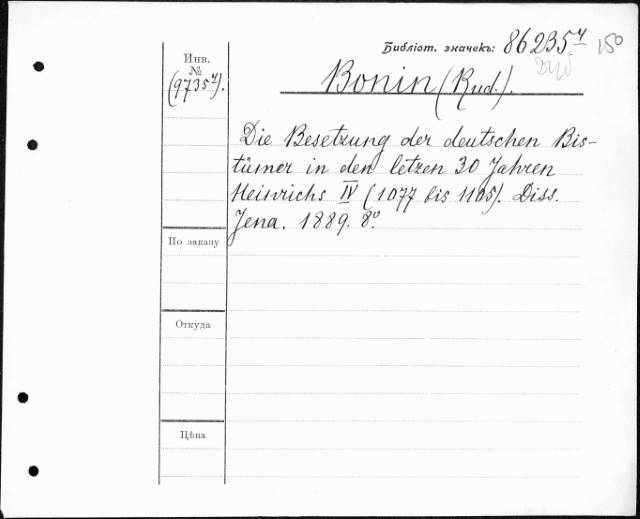 Библіот. значекъ: 86235 ч 150
Дуб
Инв.
№
(9735 ч).
Bonin (Rud.).
Die Besetzung der deutschen Bis-
tümer in den letzen 30 Jahren
Heinrichs IV (1077 bis 1105). Diss.
Jena. 1889. 8°.
По заказу
Откуда
Цѣна